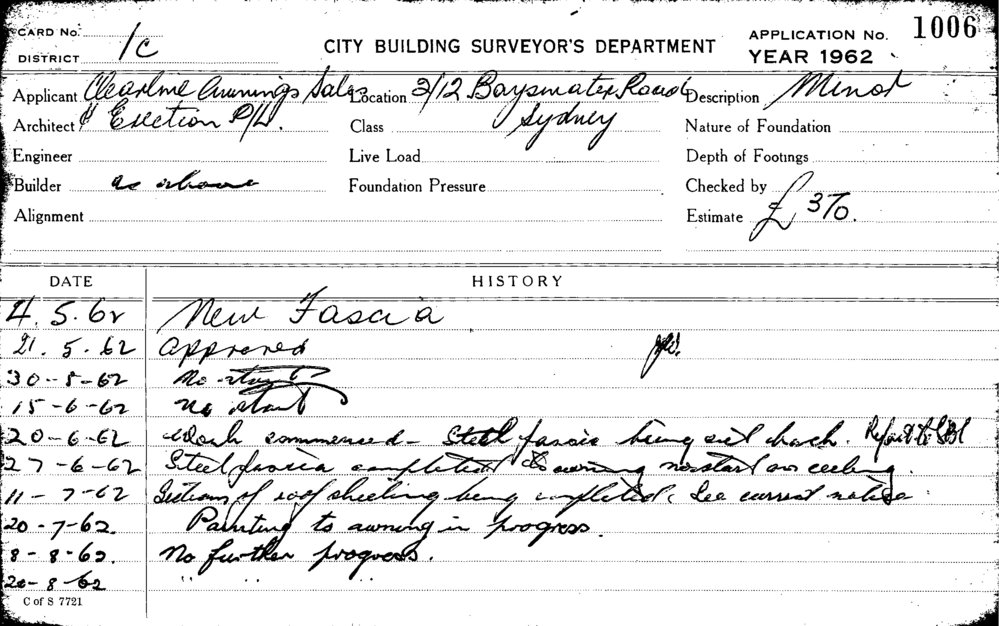 CARD No.
DISTRICT 1c
CITY BUILDING SURVEYOR'S DEPARTMENT
APPLICATION No. 1006
YEAR 1962
Applicant Clearline Awnings Sales Location 2/12 Bayswater Road Description Minor
Architect & Erection P/L. Class Sydney Nature of Foundation
Engineer Live Load Depth of Footings
Builder as above Foundation Pressure Checked by
Alignment Estimate £370.
DATE HISTORY
4.5.62 New Fascia
21.5.62 Approved
30-5-62 No start
15-6-62 No start
20-6-62 Work commenced - Steel fascia being cut back. Report to
27-6-62 Steel fascia completed to awning no start on ceiling.
11-7-62 Sections of roof sheeting being completed. See current notice
20-7-62. Painting to awning in progress.
8-8-62. No further progress.
20-8-62 " " "
C of S 7721